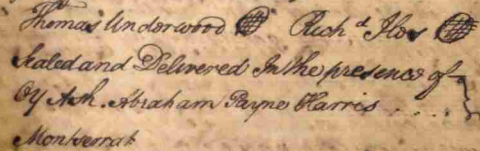 Thomas Underwood Rich.d Iles
Sealed and Delivered In the presence of
Abraham Payne Harris
Montserrat